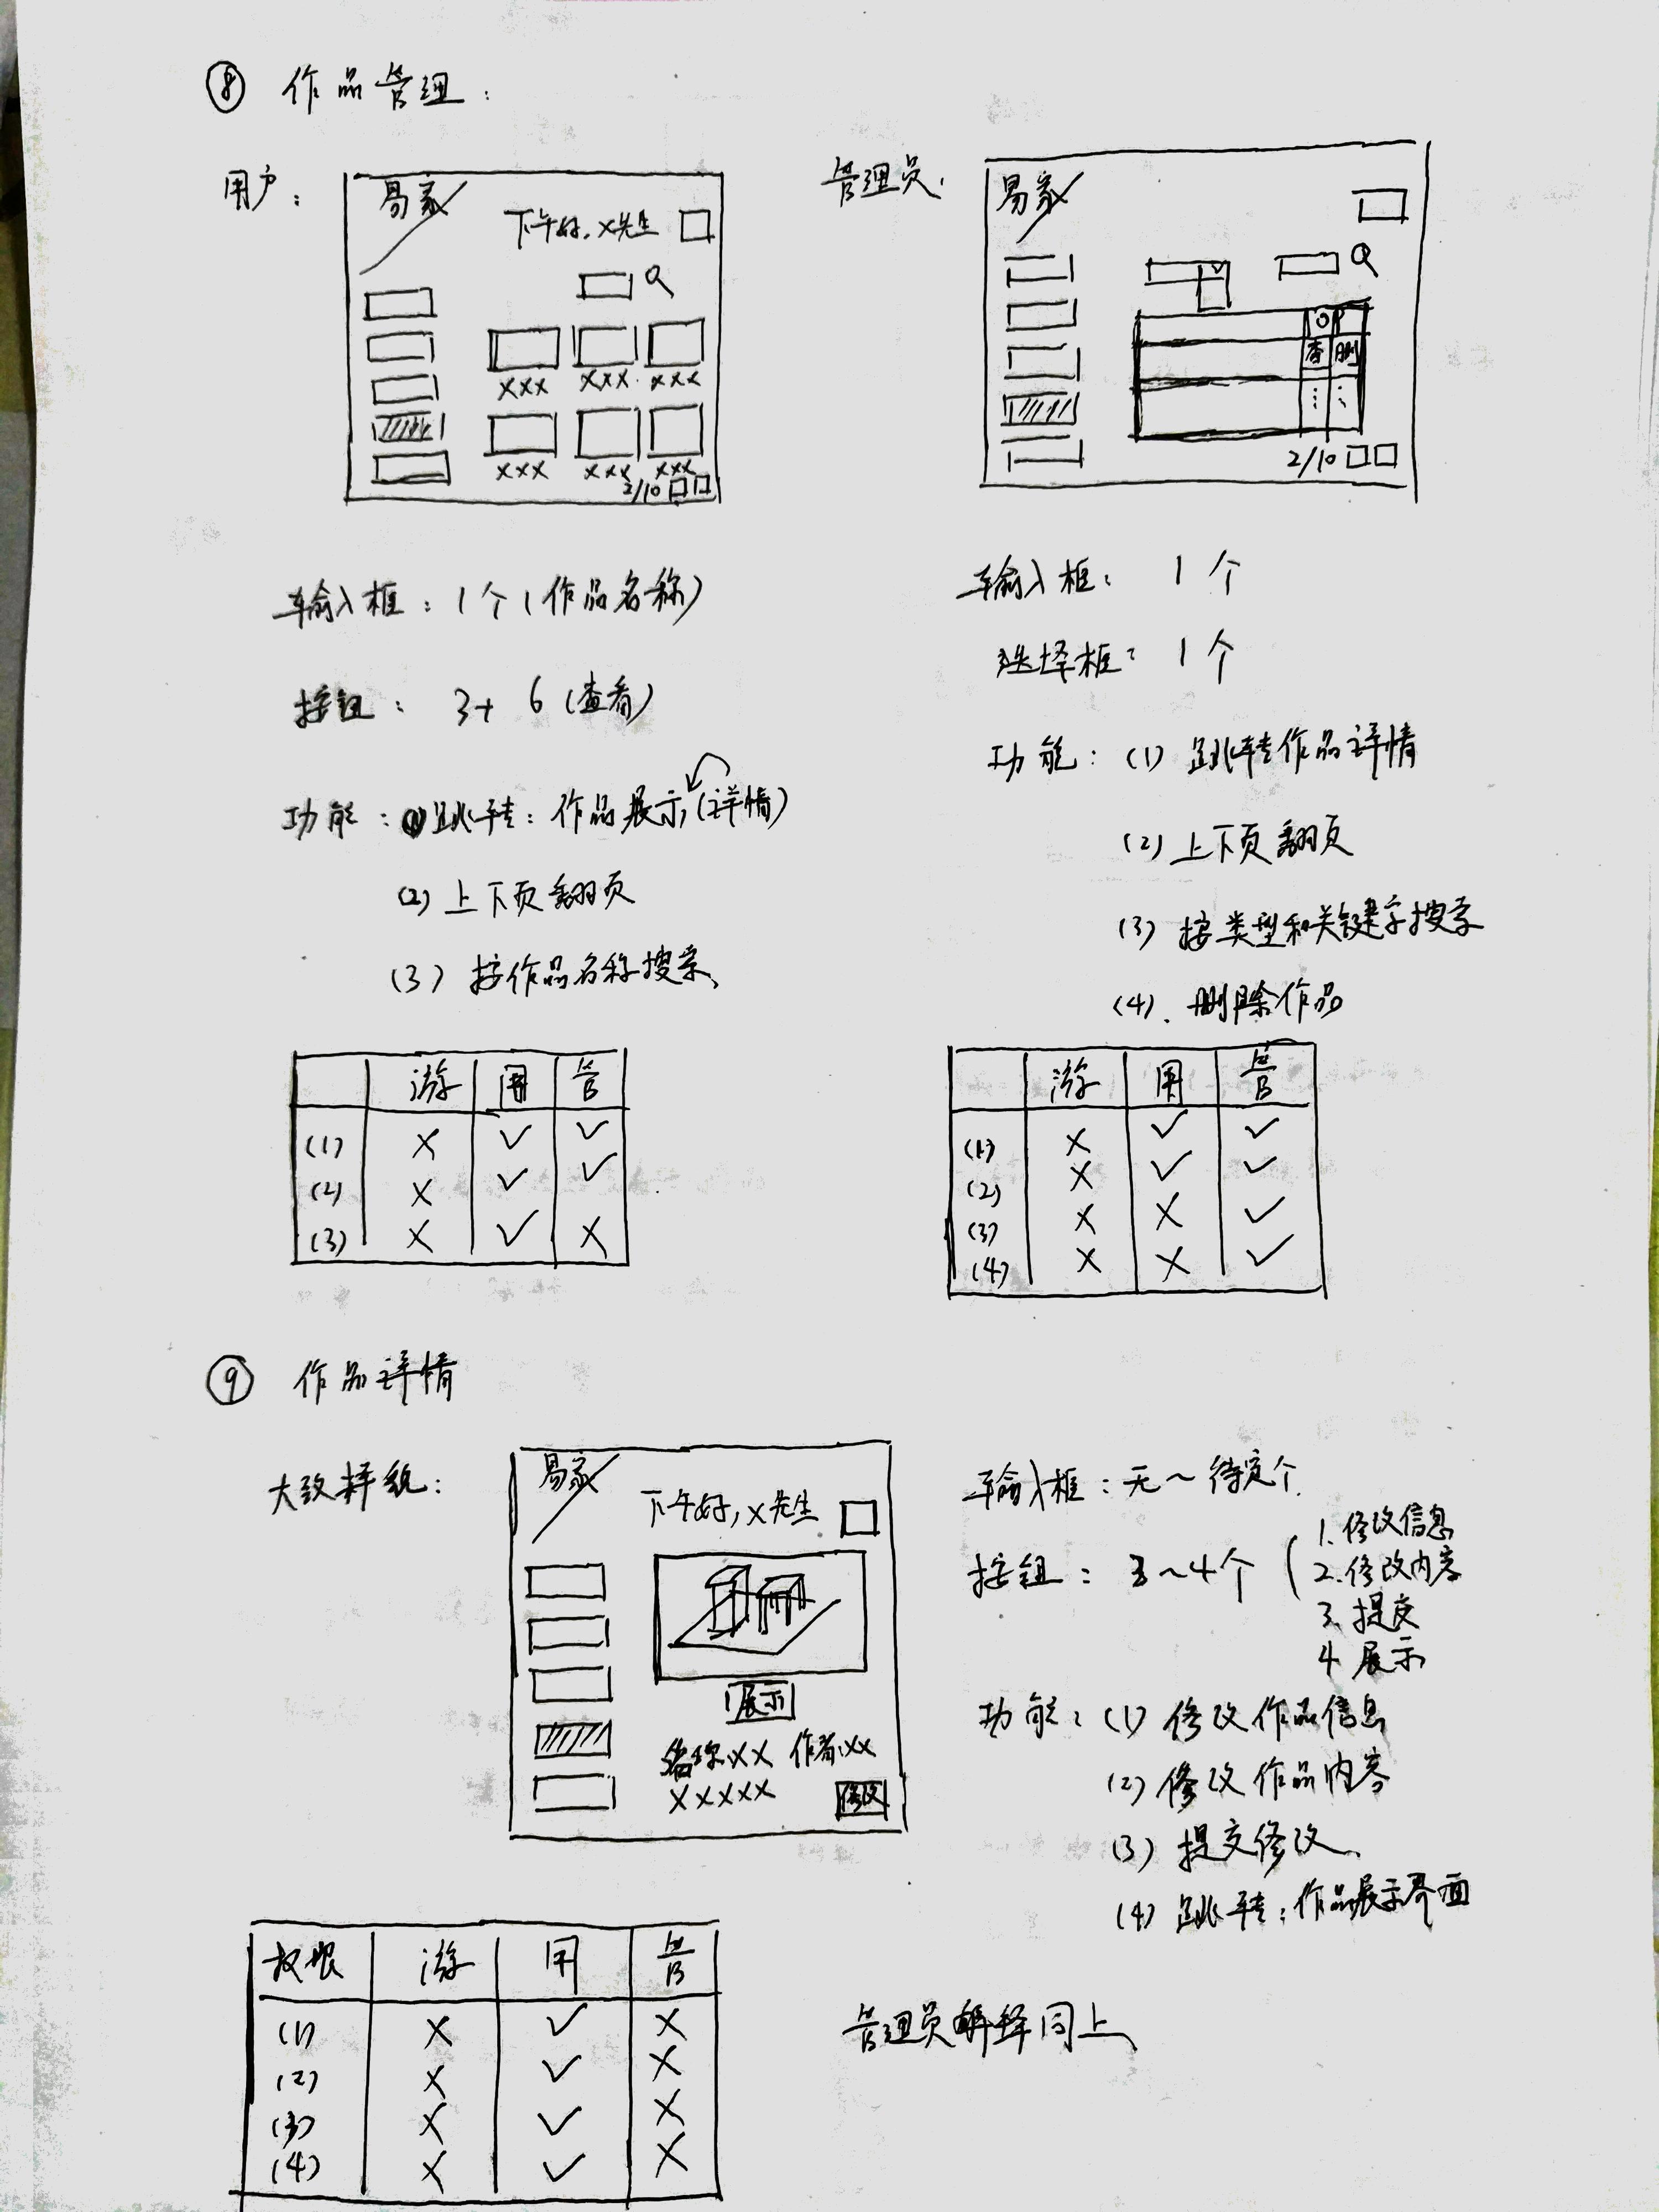 ⑧ 作品管理：
用户：
易家
下午好，X先生
XXX XXX XXX
XXX XXX XXX
2/10
输入框：1个（作品名称）
按钮：3+6（查看）
功能：(1)跳转：作品展示（详情）
(2)上下页翻页
(3)按作品名称搜索
游 用 管
(1) × ✓ ✓
(2) × ✓ ✓
(3) × ✓ ×
管理员：
易家
查 删
2/10
输入框：1个
选择框：1个
功能：(1)跳转作品详情
(2)上下页翻页
(3)按类型和关键字搜索
(4).删除作品
游 用 管
(1) × ✓ ✓
(2) × ✓ ✓
(3) × × ✓
(4) × × ✓
⑨ 作品详情
大致样貌：
易家
下午好，X先生
展示
名称：XX 作者：XX
XXXXX
修改
输入框：无～待定个.
按钮：3～4个（1.修改信息
2.修改内容
3.提交
4.展示
功能：(1)修改作品信息
(2)修改作品内容
(3)提交修改
(4)跳转：作品展示界面
权限 游 用 管
(1) × ✓ ×
(2) × ✓ ×
(3) × ✓ ×
(4) × ✓ ×
管理员解释同上